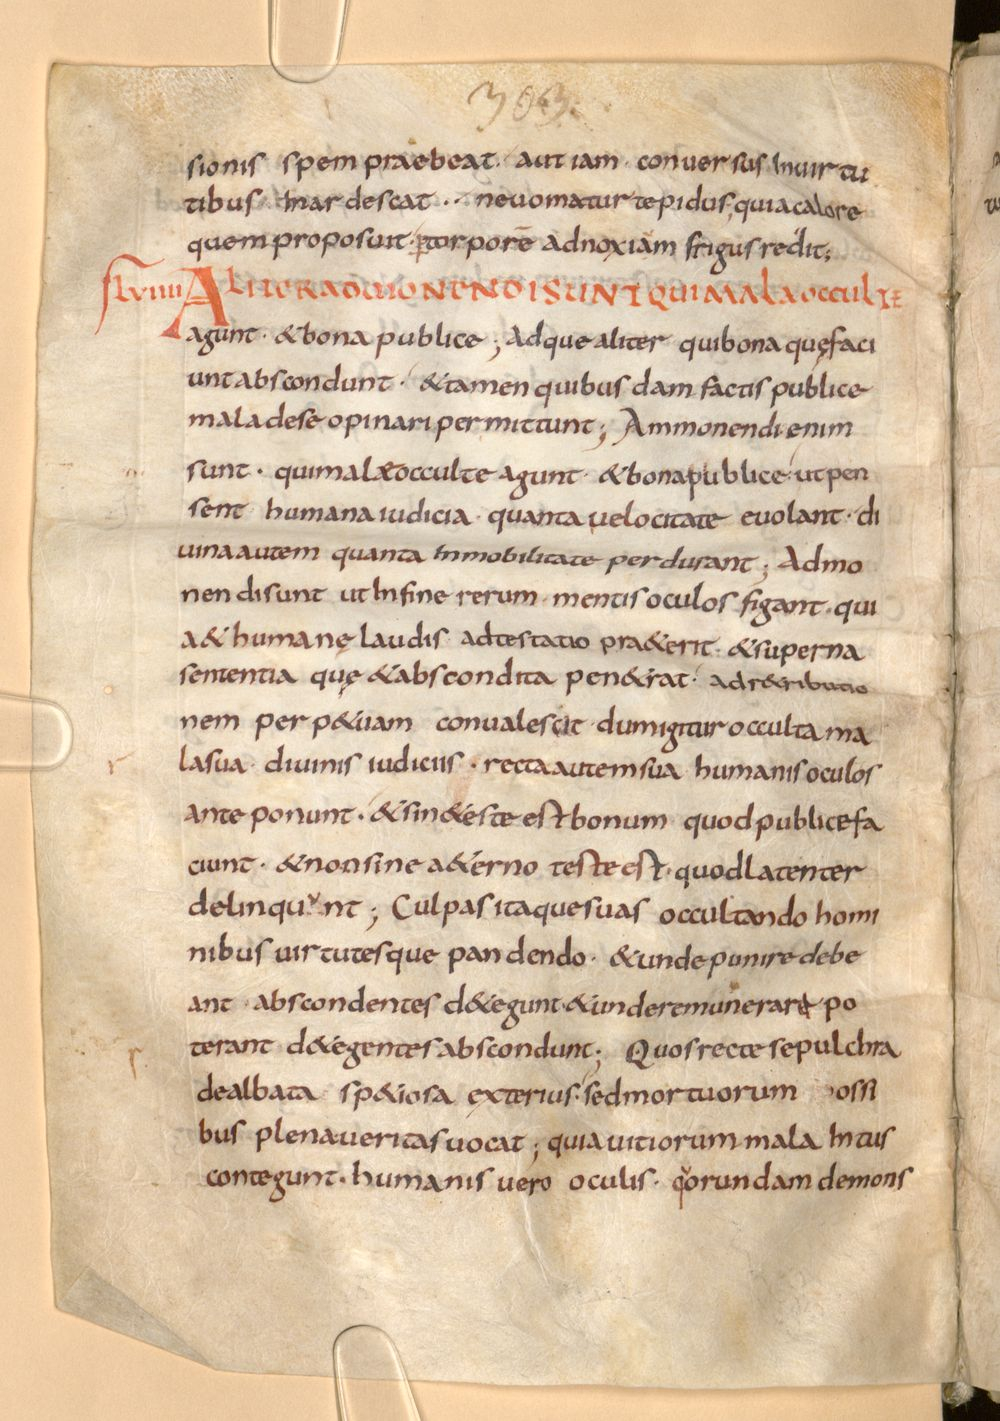 303.
sionis spem praebeat. aut iam. conuersus Inuirtu
tibus. Inardescat .. neuomatur tepidus, quiacalore
quem proposuit. ꝑtorporē adnoxiam frigus redit;
lxviiii ALITER ADMONENDI SUNT QUI MALA OCCULTE
agunt. &bona publice; Adque aliter quibona quęfaci
untabscondunt. &tamen quibusdam factis publice
maladese opinari permittunt; Ammonendi enim
sunt. quimala occulte agunt. &bonapublice. utpen
sent humanaiudicia quanta uelocitate euolant. di
uinaautem quanta Inmobilitate perdurant; Admo
nendisunt utInfine rerum mentis oculos figant. qui
a& humanę laudis adtestatio pra&erit. &superna
sententia quę &abscondita pen&rat. adr&ributio
nem perp&uam conualescit. dumigitur occulta ma
lasua diuinis iudiciis. rectaautemsua humanisoculos
anteponunt. &sin&este estbonum quodpublicefa
ciunt. &nonsine a&erno testeest. quodlatenter
delinquunt; Culpas itaquesuas occultando homi
nibus uirtutesque pandendo. &undepunire debe
ant abscondentes d&egunt. &underemunerare po
terant d&egentes abscondunt; Quosrecte sepulchra
dealbata sp&iosa exterius. sedmortuorum ossi
bus plenaueritasuocat; quiauitiorum mala Intus
contegunt. humanis uero oculis. quorundam demons